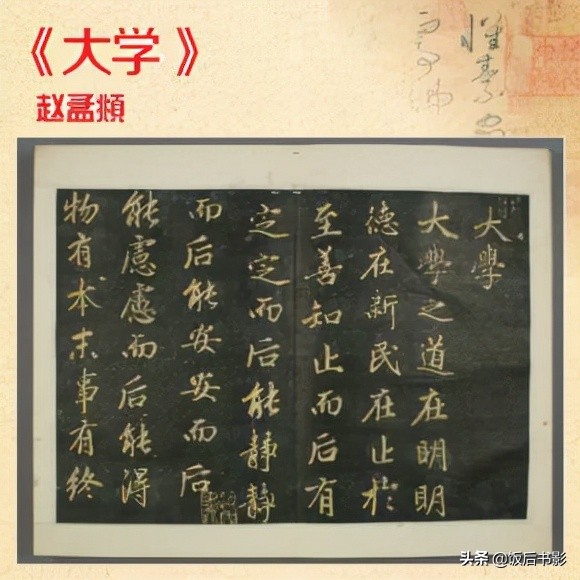 《大学》
赵孟頫
大學
大學之道在明明
德在新民在止於
至善知止而后有
定定而后能静静
而后能安安而后
能慮慮而后能得
物有本末事有終
头条 @饭后书影